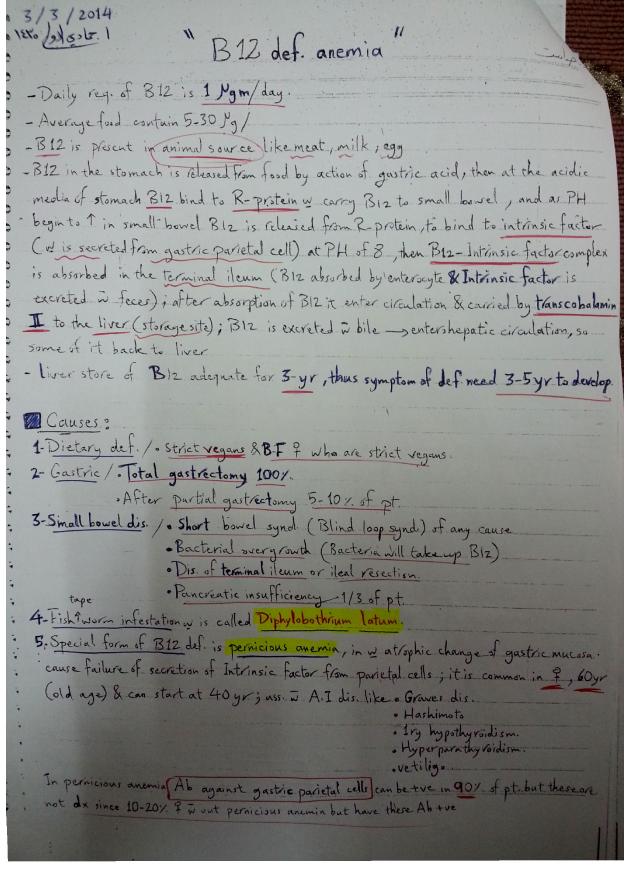 3/3/2014
" B12 def. anemia "
- Daily req. of B12 is 1 μgm/day.
- Average food contain 5-30 μg/
- B12 is present in animal source like meat, milk, egg
- B12 in the stomach is released from food by action of gastric acid, then at the acidic
media of stomach B12 bind to R-protein w carry B12 to small bowel, and as PH
begin to ↑ in small bowel B12 is released from R protein, to bind to intrinsic factor
(w is secreted from gastric parietal cell) at PH of 8, then B12-Intrinsic factor complex
is absorbed in the terminal ileum (B12 absorbed by enterocyte & Intrinsic factor is
excreted w̄ feces); after absorption of B12 it enter circulation & carried by transcobalamin
II to the liver (storage site); B12 is excreted w̄ bile → enterohepatic circulation, so
some of it back to liver
- liver store of B12 adequate for 3-yr, thus symptom of def need 3-5 yr to develop.
Causes:
1- Dietary def. / • Strict vegans & B.F ♀ who are strict vegans.
2- Gastric / • Total gastrectomy 100%.
• After partial gastrectomy 5-10% of pt.
3- Small bowel dis. / • Short bowel synd (Blind loop synd) of any cause
• Bacterial overgrowth (Bacteria will take up B12)
• Dis. of terminal ileum or ileal resection.
• Pancreatic insufficiency 1/3 of pt.
tape
4- Fish ↑ worm infestation w is called Diphylobothrium latum.
5- Special form of B12 def. is pernicious anemia, in w atrophic change of gastric mucosa.
cause failure of secretion of Intrinsic Factor from parietal cells; it is common in ♀, 60yr
(old age) & can start at 40 yr; ass. w̄ A.I dis. like • Graves dis.
• Hashimoto
• 1ry hypothyroidism.
• Hyperparathyroidism.
• vetiligo
In pernicious anemia Ab against gastric parietal cells can be +ve in 90% of pt. but these are
not dx since 10-20% ♀ w̄ out pernicious anemin but have these Ab +ve